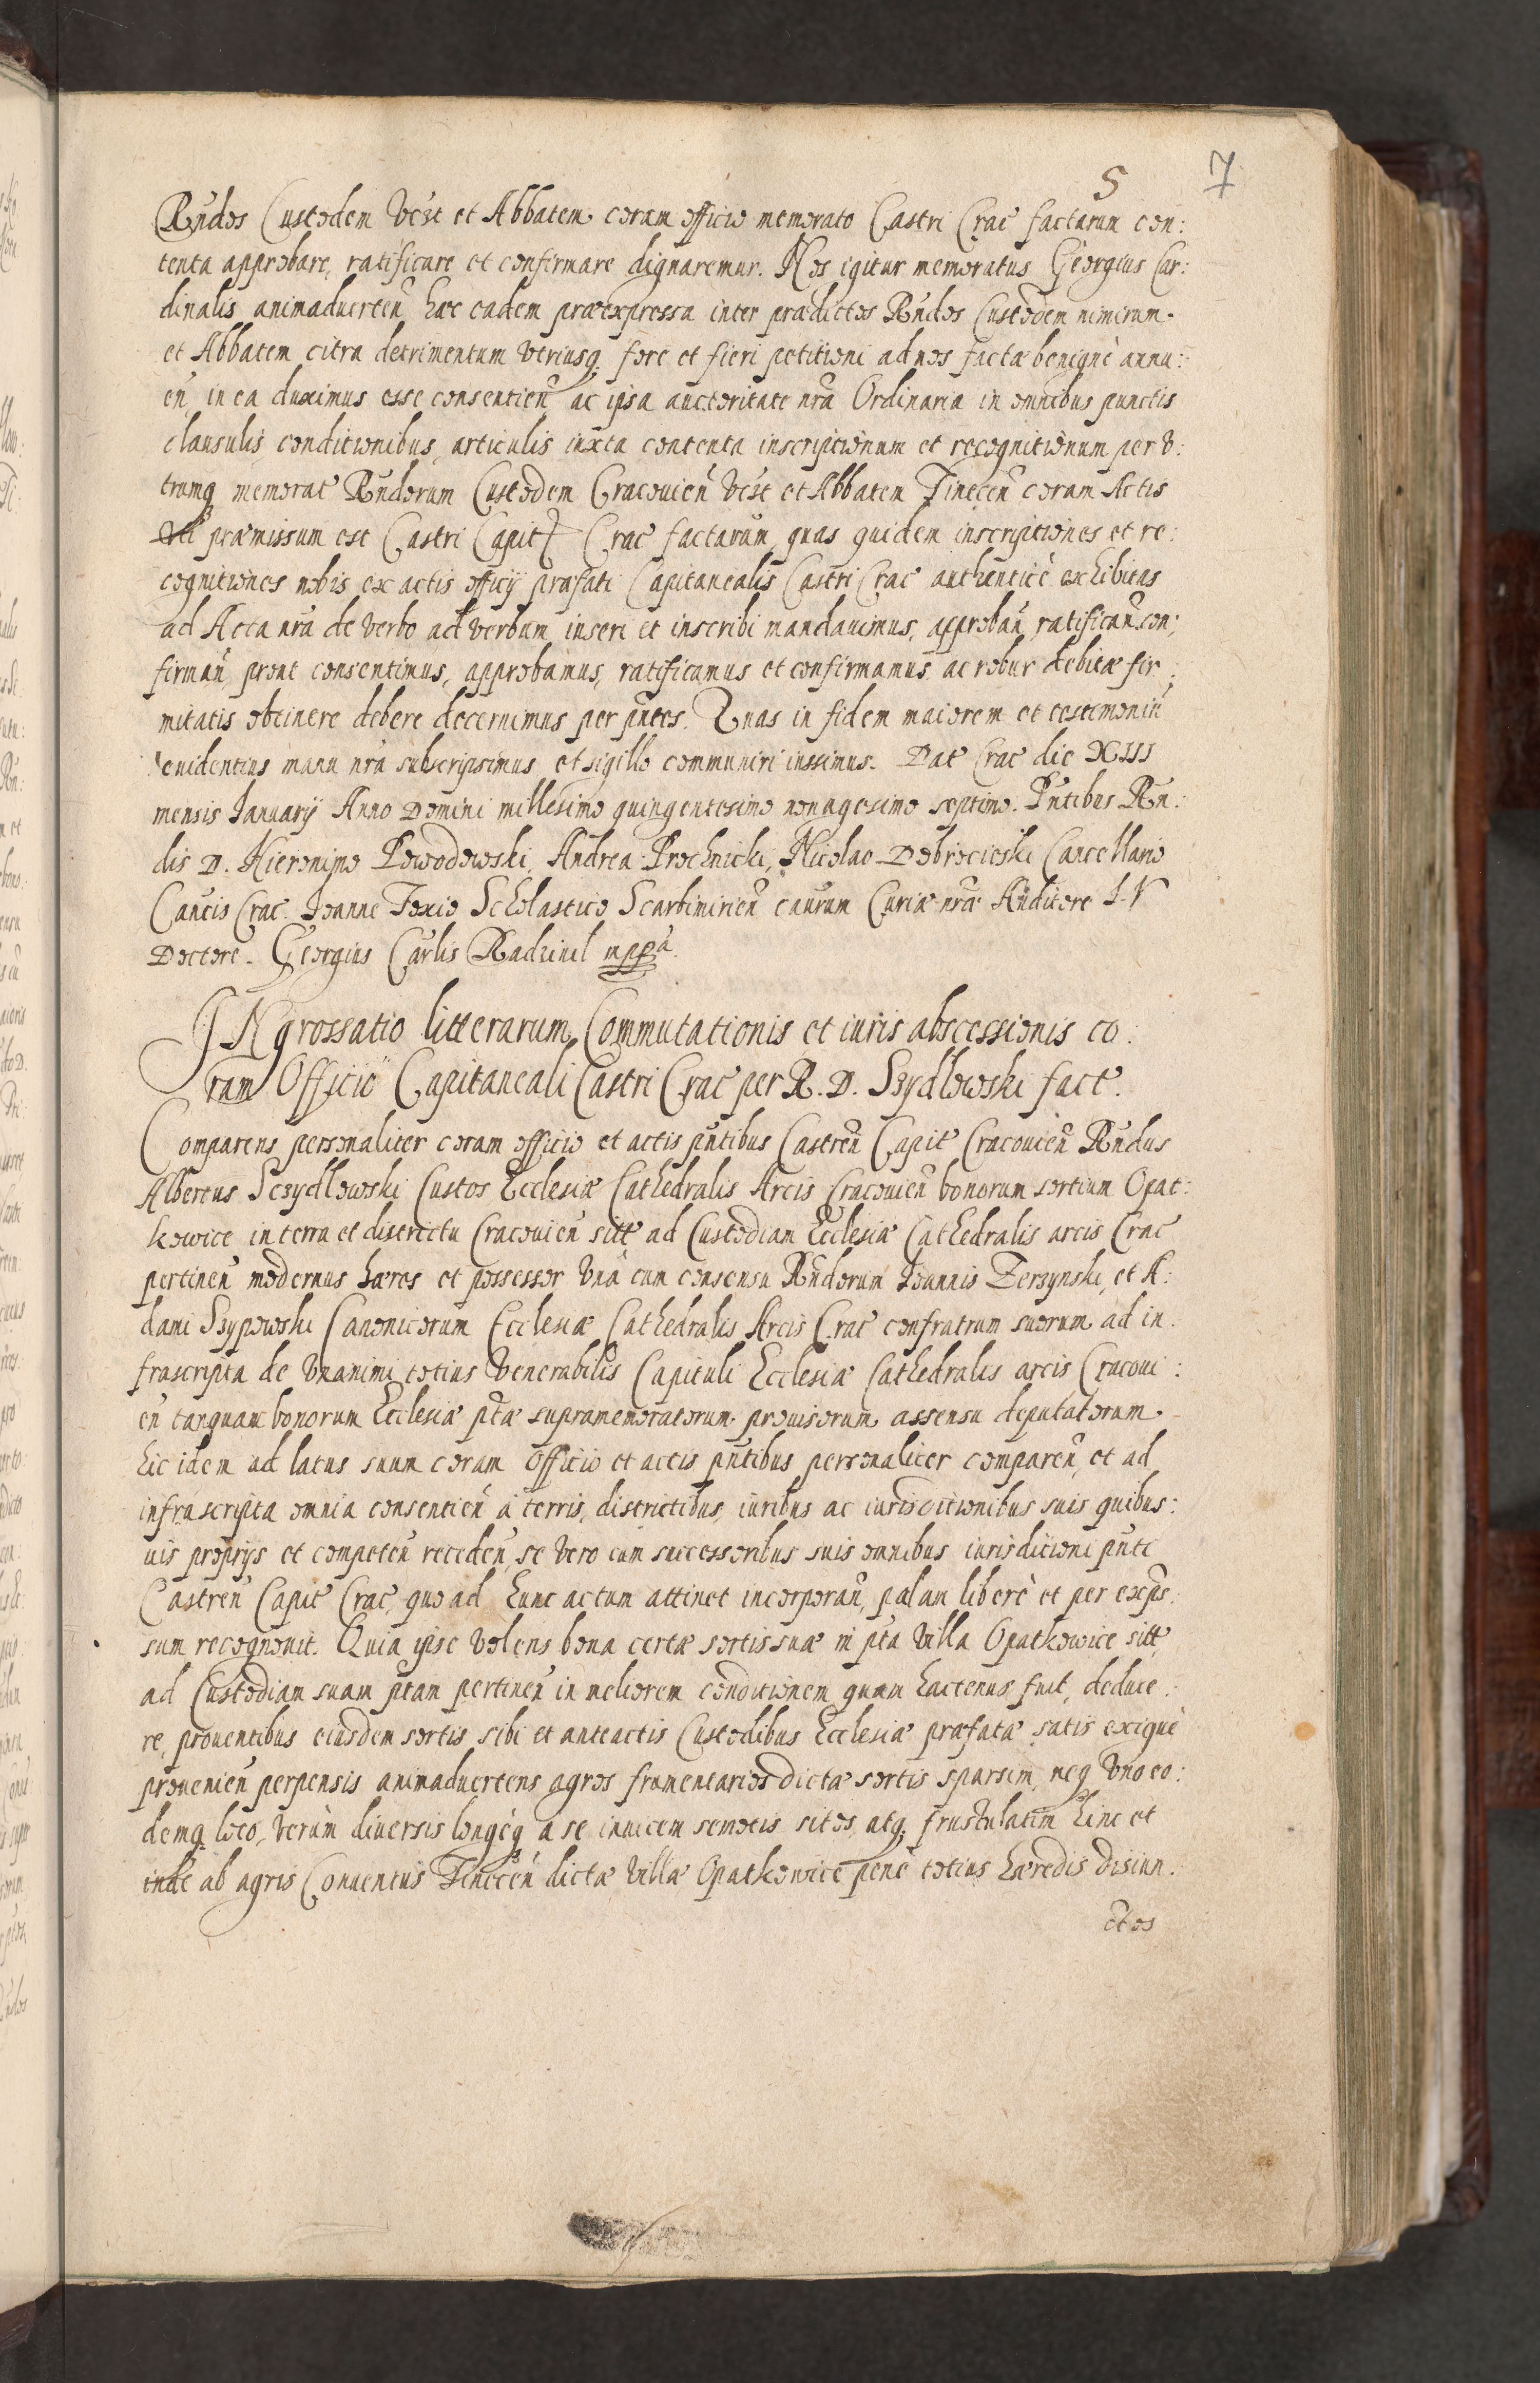 5 7
Rndos Custodem vest et Abbatem coram officio memorato Castri Crac factarum con:
tenta approbare, ratificare et confirmare dignaremur. Nos igitur memoratus Georgius Car:
dinalis animaduerten haec eadem praeexpressa inter praedictos Rndos Custodem nimirum
et Abbatem citra detrimentum vtriusq fore et fieri petitioni ad nos factae benignè annu:
en in ea duximus esse consentien ac ipsa auctoritate nra Ordinaria in omnibus punctis
clausulis, conditionibus, articulis iuxta contenta inscriptionum et recognitionum per v:
trumq memorat Rndorum Custodem Cracouien vest et Abbatem Tinecen coram Actis
vti praemissum est Castri Capit Crac factarum, quas quidem inscriptiones et re:
cognitiones nobis ex actis officij praefati Capitanealis Castri Crac authenticè exhibitas
ad Acta nra de verbo ad verbum inseri et inscribi mandauimus, approban, ratifican, con:
firman prout consentimus, approbamus, ratificamus et confirmamus ac robur debitae fir:
mitatis obtinere debere decernimus per pntes. Quas in fidem maiorem et testimoniu
euidentius manu nra subscripsimus et sigillo communiri iussimus. Dat Crac die XIII
mensis Ianuarij Anno Domini millesimo quingentesimo nonagesimo septimo. Pntibus Rn:
dis D. Hieronimo Powodowski, Andrea Prochnicki, Nicolao Dobrocieski Cancellario
Cancis Crac. Ioanne Foxio Scholastico Scarbimirien caurum Curiae nrae Auditore I. V
Doctore. Georgius Carlis Radziuil mppa.
INgrossatio litterarum Commutationis et iuris abscessionis co:
ram Officio Capitaneali Castri Crac per R. D. Szydlowski fact.
Comparens personaliter coram officio et actis pntibus Castren Capit Cracouien Rndus
Albertus Sczydlowski Custos Ecclesiae Cathedralis Arcis Cracouien bonorum sortium Opat:
kowice in terra et districtu Cracouien sitt ad Custodiam Ecclesiae Cathedralis arcis Crac
pertinen modernus haeres et possessor vnà cum consensu Rndorum Ioannis Zerzynski, et A:
dami Szypowski Canonicorum Ecclesiae Cathedralis Arcis Crac confratrum suorum ad in:
frascripta de vnanimi totius Venerabilis Capituli Ecclesiae Cathedralis arcis Cracoui:
en tanquam bonorum Ecclesiae ptae supramemoratorum prouisorum assensu deputatorum
hic idem ad latus suum coram Officio et actis pntibus personaliter comparen, et ad
infrascripta omnia consentien à terris, districtibus, iuribus ac iurisditionibus suis quibus:
uis proprijs et competen receden, se vero cum successoribus suis omnibus iurisdictioni pnti
Castren Capit Crac, quo ad hunc actum attinet incorporan, palam liberè et per expres:
sum recognouit. Quia ipse volens bona certae sortis suae in pta villa Opatkowice sitt
ad Custodiam suam ptam pertinen in meliorem conditionem quam hactenus fuit, deduce:
re, prouentibus eiusdem sortis sibi et anteactis Custodibus Ecclesiae praefatae satis exiguè
prouenien perpensis animaduertens agros frumentarios dictae sortis sparsim, neq vno eo:
demq loco, verùm diuersis longèq a se inuicem semotis sitos, atq frustulatim hinc et
inde ab agris Conuentus Tinecen dictae villae Opatkowice penè totius haeredis disiun:
ctos